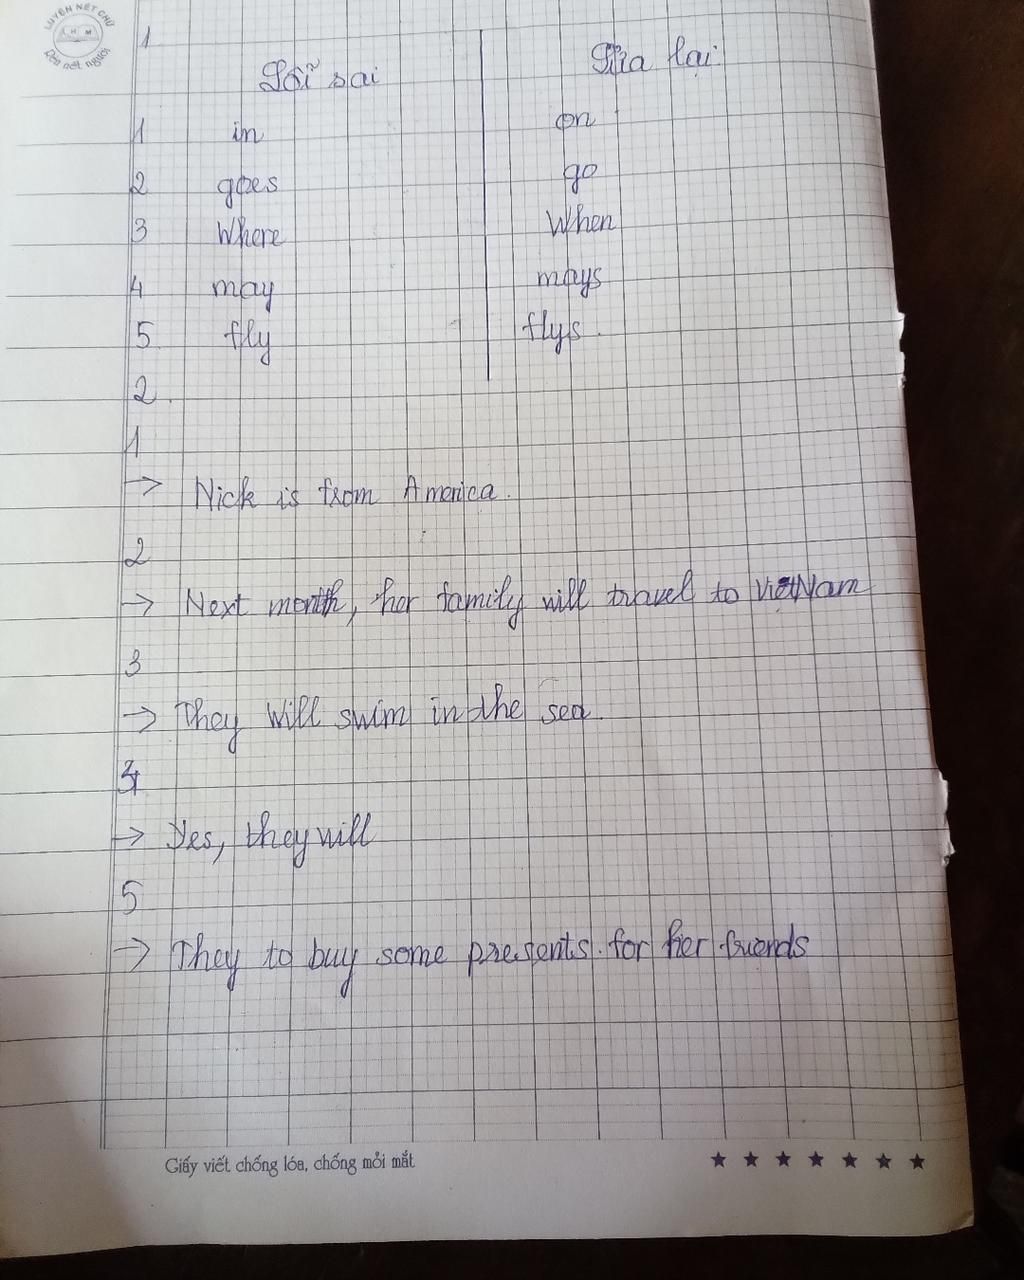 LUYỆN NÉT CHỮ
HM
Rèn nết người
1
Lỗi sai Sửa lại
1 in on
2 goes go
3 Where When
4 may mays
5 fly flys.
2.
1
→ Nick is from America.
2
→ Next month, her family will travel to VietNam
3
→ They will swim in the sea.
4
→ Yes, they will
5
→ They to buy some presents. for her friends
Giấy viết chống lóa, chống mỏi mắt